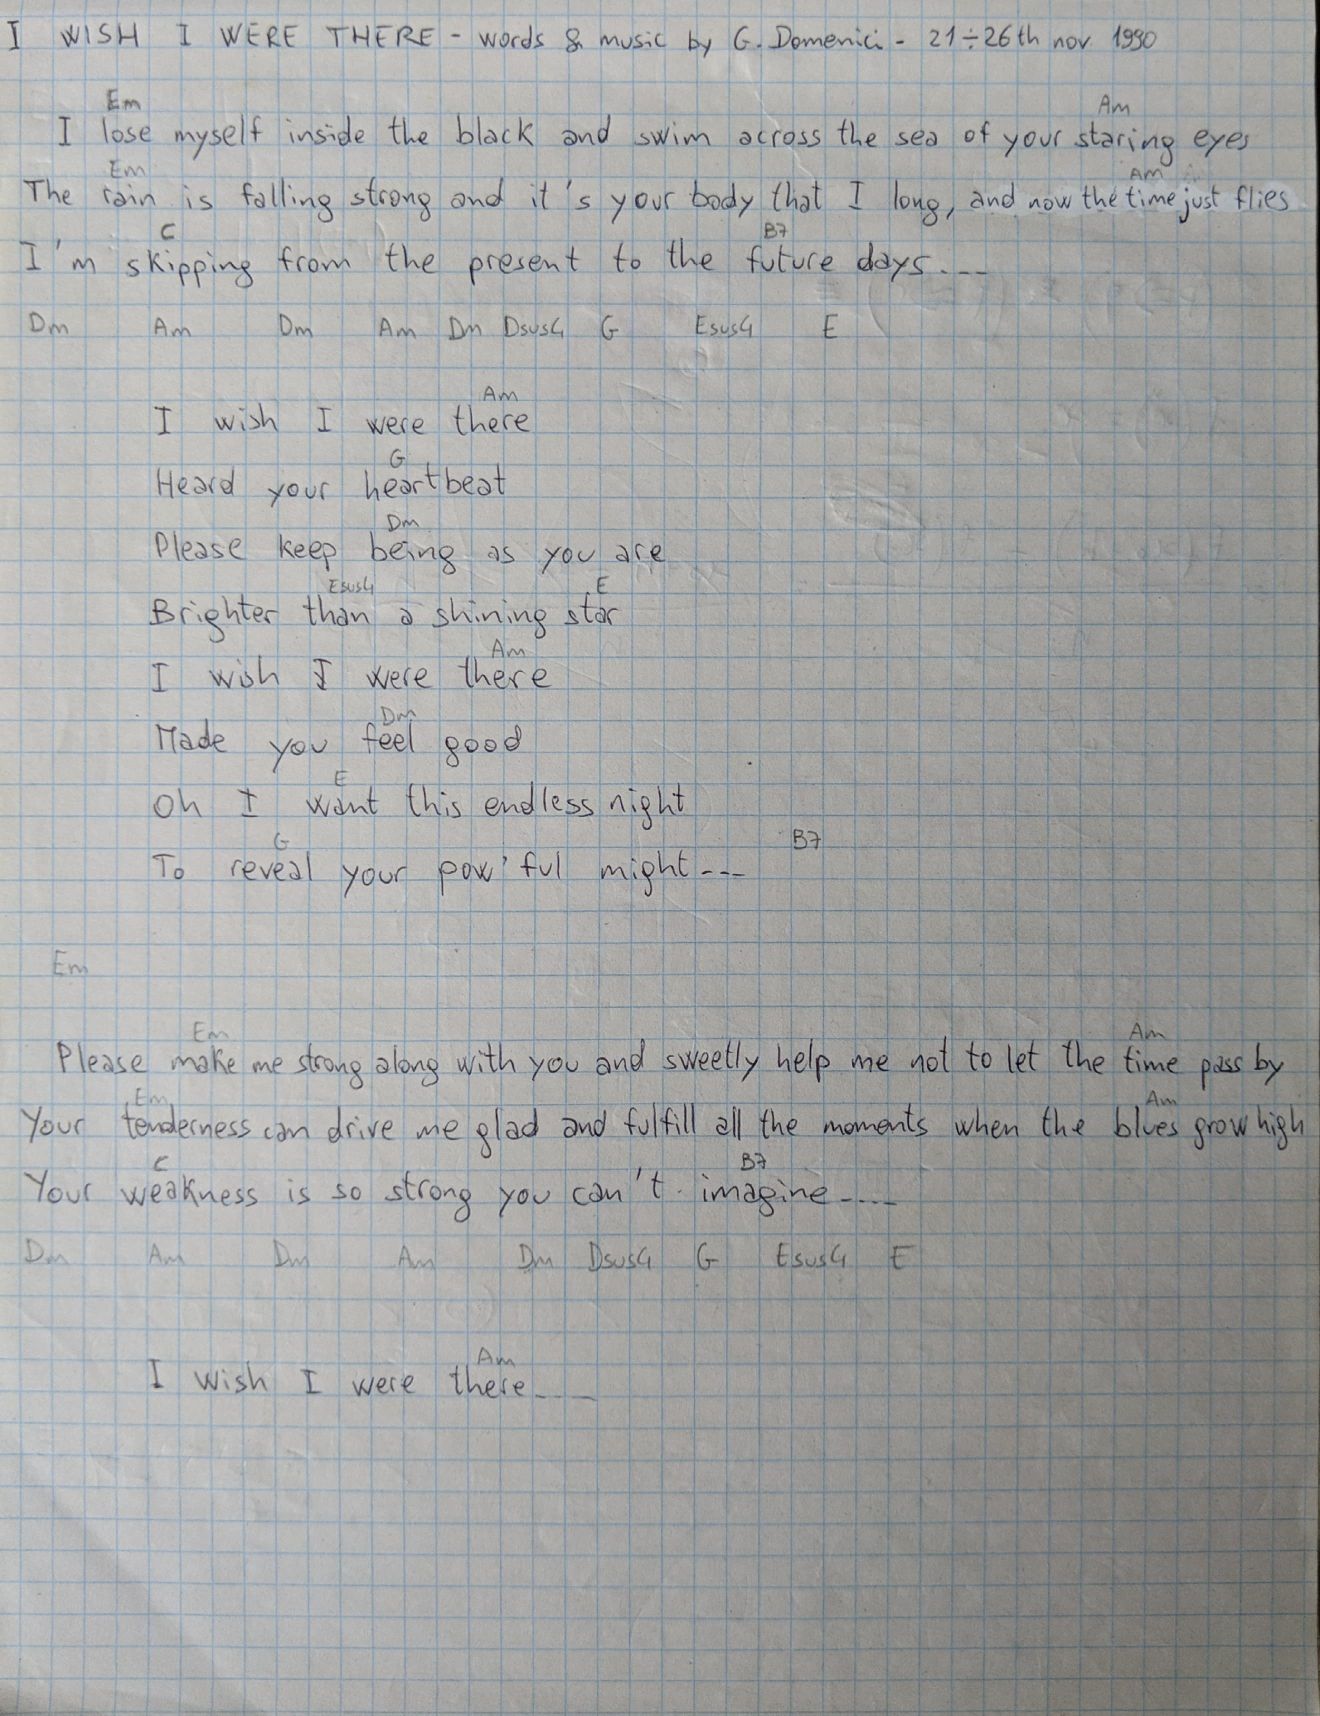 I WISH I WERE THERE - words & music by G. Domenici - 21÷26th nov 1990
Em Am
I lose myself inside the black and swim across the sea of your staring eyes
Em Am
The rain is falling strong and it's your body that I long, and now the time just flies
C B7
I'm skipping from the present to the future days...
Dm Am Dm Am Dm Dsus4 G Esus4 E
Am
I wish I were there
G
Heard your heartbeat
Dm
Please keep being as you are
Esus4 E
Brighter than a shining star
Am
I wish I were there
Dm
Made you feel good
E
Oh I want this endless night
G B7
To reveal your pow'ful might---
Em
Em Am
Please make me strong along with you and sweetly help me not to let the time pass by
Em Am
Your tenderness can drive me glad and fulfill all the moments when the blues grow high
C B7
Your weakness is so strong you can't imagine....
Dm Am Dm Am Dm Dsus4 G Esus4 E
Am
I wish I were there....